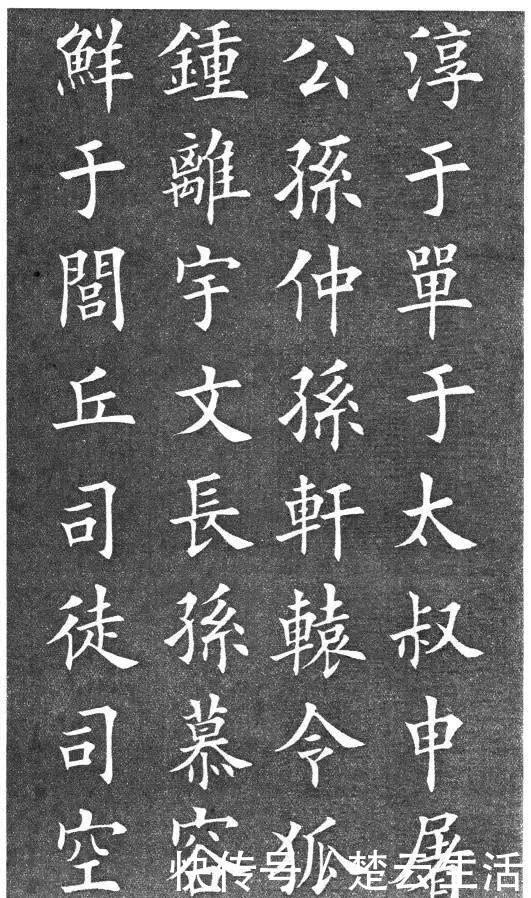 淳于單于太叔申屠
公孫仲孫軒轅令狐
鍾離宇文長孫慕容
鮮于閭丘司徒司空
快传号/楚云生活